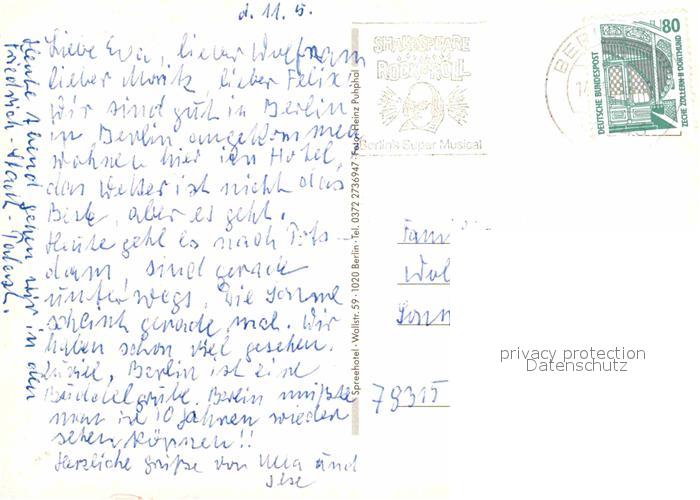 d. 11. 5.
Liebe Eva, lieber Wolfram
lieber Moritz, lieber Felix!
Wir sind gut in Berlin
in Berlin angekommen
wohnen hier im Hotel,
das Wetter ist nicht das
Beste, aber es geht.
Heute geht es nach Pots-
dam, sind gerade
unterwegs. Die Sonne
scheint gerade mal. Wir
haben schon viel gesehen.
Berlin ist eine
Berlin müßte
man in 10 Jahren wieder
sehen können!!
Herzliche Grüße von Ulla und
Ilse
Heute Abend gehen wir in den
Friedrich-Stadt-Palast.
Spreehotel · Wallstr. 59 · 1020 Berlin · Tel. 0372 2736947 · Foto: Heinz Puhphal
SHAKESPEARE
&
ROCK'N'ROLL
Berlin's Super Musical
BER
80
DEUTSCHE BUNDESPOST
ZECHE ZOLLERN II DORTMUND
Fami
Wol
Sonn
78315
privacy protection
Datenschutz